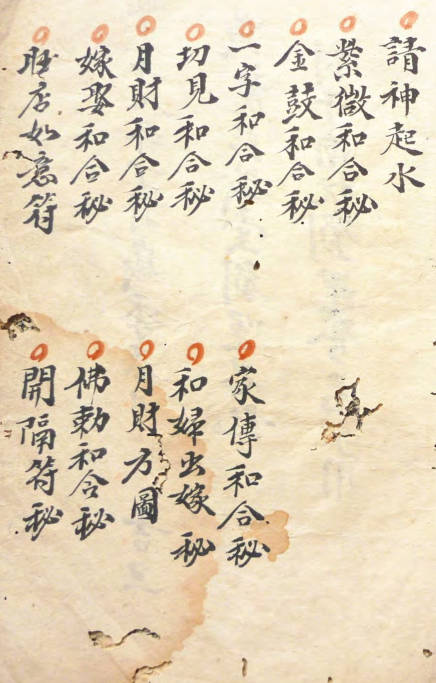 請神起水
紫微和合秘
金鼓和合秘
一字和合秘
切見和合秘
月財和合秘
嫁娶和合秘
旺店如意符
家傳和合秘
和婦出嫁秘
月財方圖
佛勅和合秘
開隔符秘